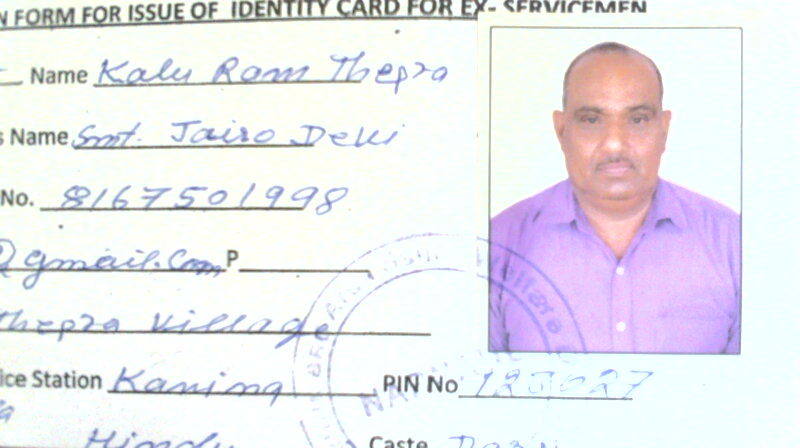 N FORM FOR ISSUE OF IDENTITY CARD FOR EX- SERVICEMEN
Name Kalu Ram Thepra
s Name Smt. Jairo Devi
No. 8167501998
@gmail.com P
Thepra Village
ice Station Kanina PIN No 123027
Hindu Caste